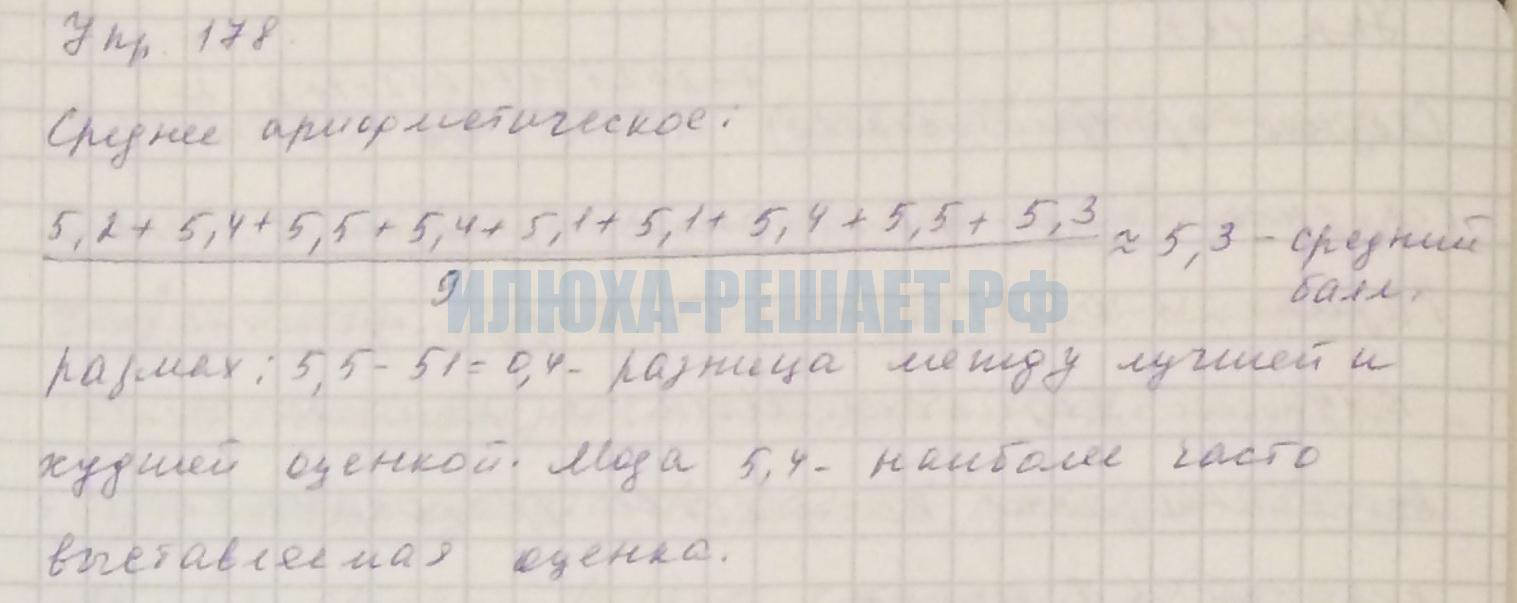 Упр. 178
Среднее арифметическое:
5,2 + 5,4 + 5,5 + 5,4 + 5,1 + 5,1 + 5,4 + 5,5 + 5,3 ≈ 5,3 - средний
9 балл.
ИЛЮХА-РЕШАЕТ.РФ
размах: 5,5 - 51 = 0,4 - разница между лучшей и
худшей оценкой. Мода 5,4 - наиболее часто
выставляемая оценка.